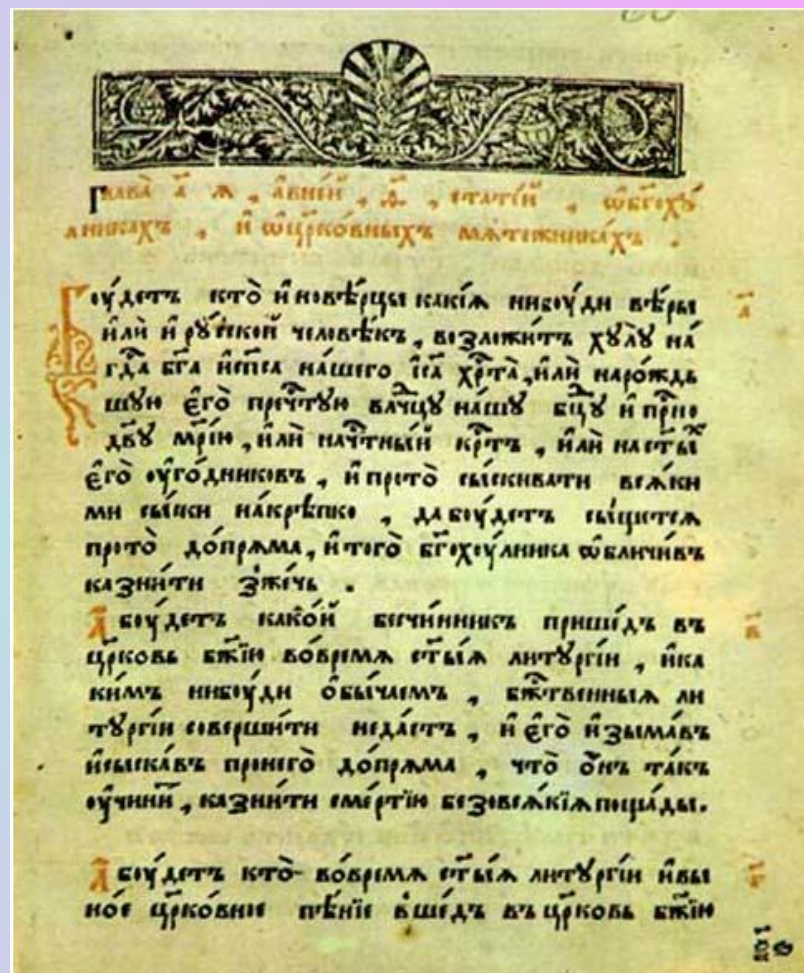 Глава̀ а҃ ѧ , а҆внє́й , ѳ҃ , статїй , ѡ҆бг҃охꙋ́
лникахъ , и҆ ѡ҆цр҃ко́вныхъ мѧте́жникахъ .
Боу́детъ кто̀ и҆новѣ́рцы какі́ѧ нибоу́ди вѣ́ры
и҆лѝ и҆рꙋ́сской человѣ́къ , возложи́тъ хꙋлꙋ̀ на́
гдⷭ҇а бг҃а и҆сп҃са на́шего і҆с҃а хрⷭ҇та̀ , и҆лѝ наро́ждь
шꙋю є҆го̀ пречⷭ҇тꙋю влⷣчцꙋ на́шꙋ бцⷣꙋ и҆ прⷭ҇но
дв҃ꙋ мр҃і́ю , и҆лѝ начⷭ҇тны́й крⷭ҇тъ , и҆лѝ наст҃ы́хъ
є҆го̀ оу҆го́дниковъ , и҆ прото̀ сы́скивати всѧ́ки
ми сы́ски на́крѣпко , да боу́детъ сы́щетсѧ
прото̀ до́прѧма , и҆того̀ бг҃охоу́лника ѡ҆бличи́въ
казни́ти зже́чь .
А҆ боу́детъ како́й бесчи́нникъ прише́дъ въ
цр҃ковь бж҃їю во́времѧ ст҃ы́ѧ литꙋргі́и , и҆ка
ки́мъ нибоу́ди ѻ҆бы́чаемъ , бжⷭ҇твенныѧ ли
тꙋргі́и соверши́ти неда́стъ , и҆ є҆го̀ и҆зыма́въ
и҆сыска́въ пронего̀ до́прѧма , что̀ ѻ҆́нъ та́къ
оу҆чини́тъ , казни́ти сме́ртїю безовсѧ́кїѧ поща́ды.
А҆ боу́детъ кто̀ во́времѧ ст҃ы́ѧ литꙋргі́и и҆вы
но́е цр҃ко́вное пѣ́нїе вше́дъ въ цр҃ковь бж҃їю
а҃
в҃
г҃